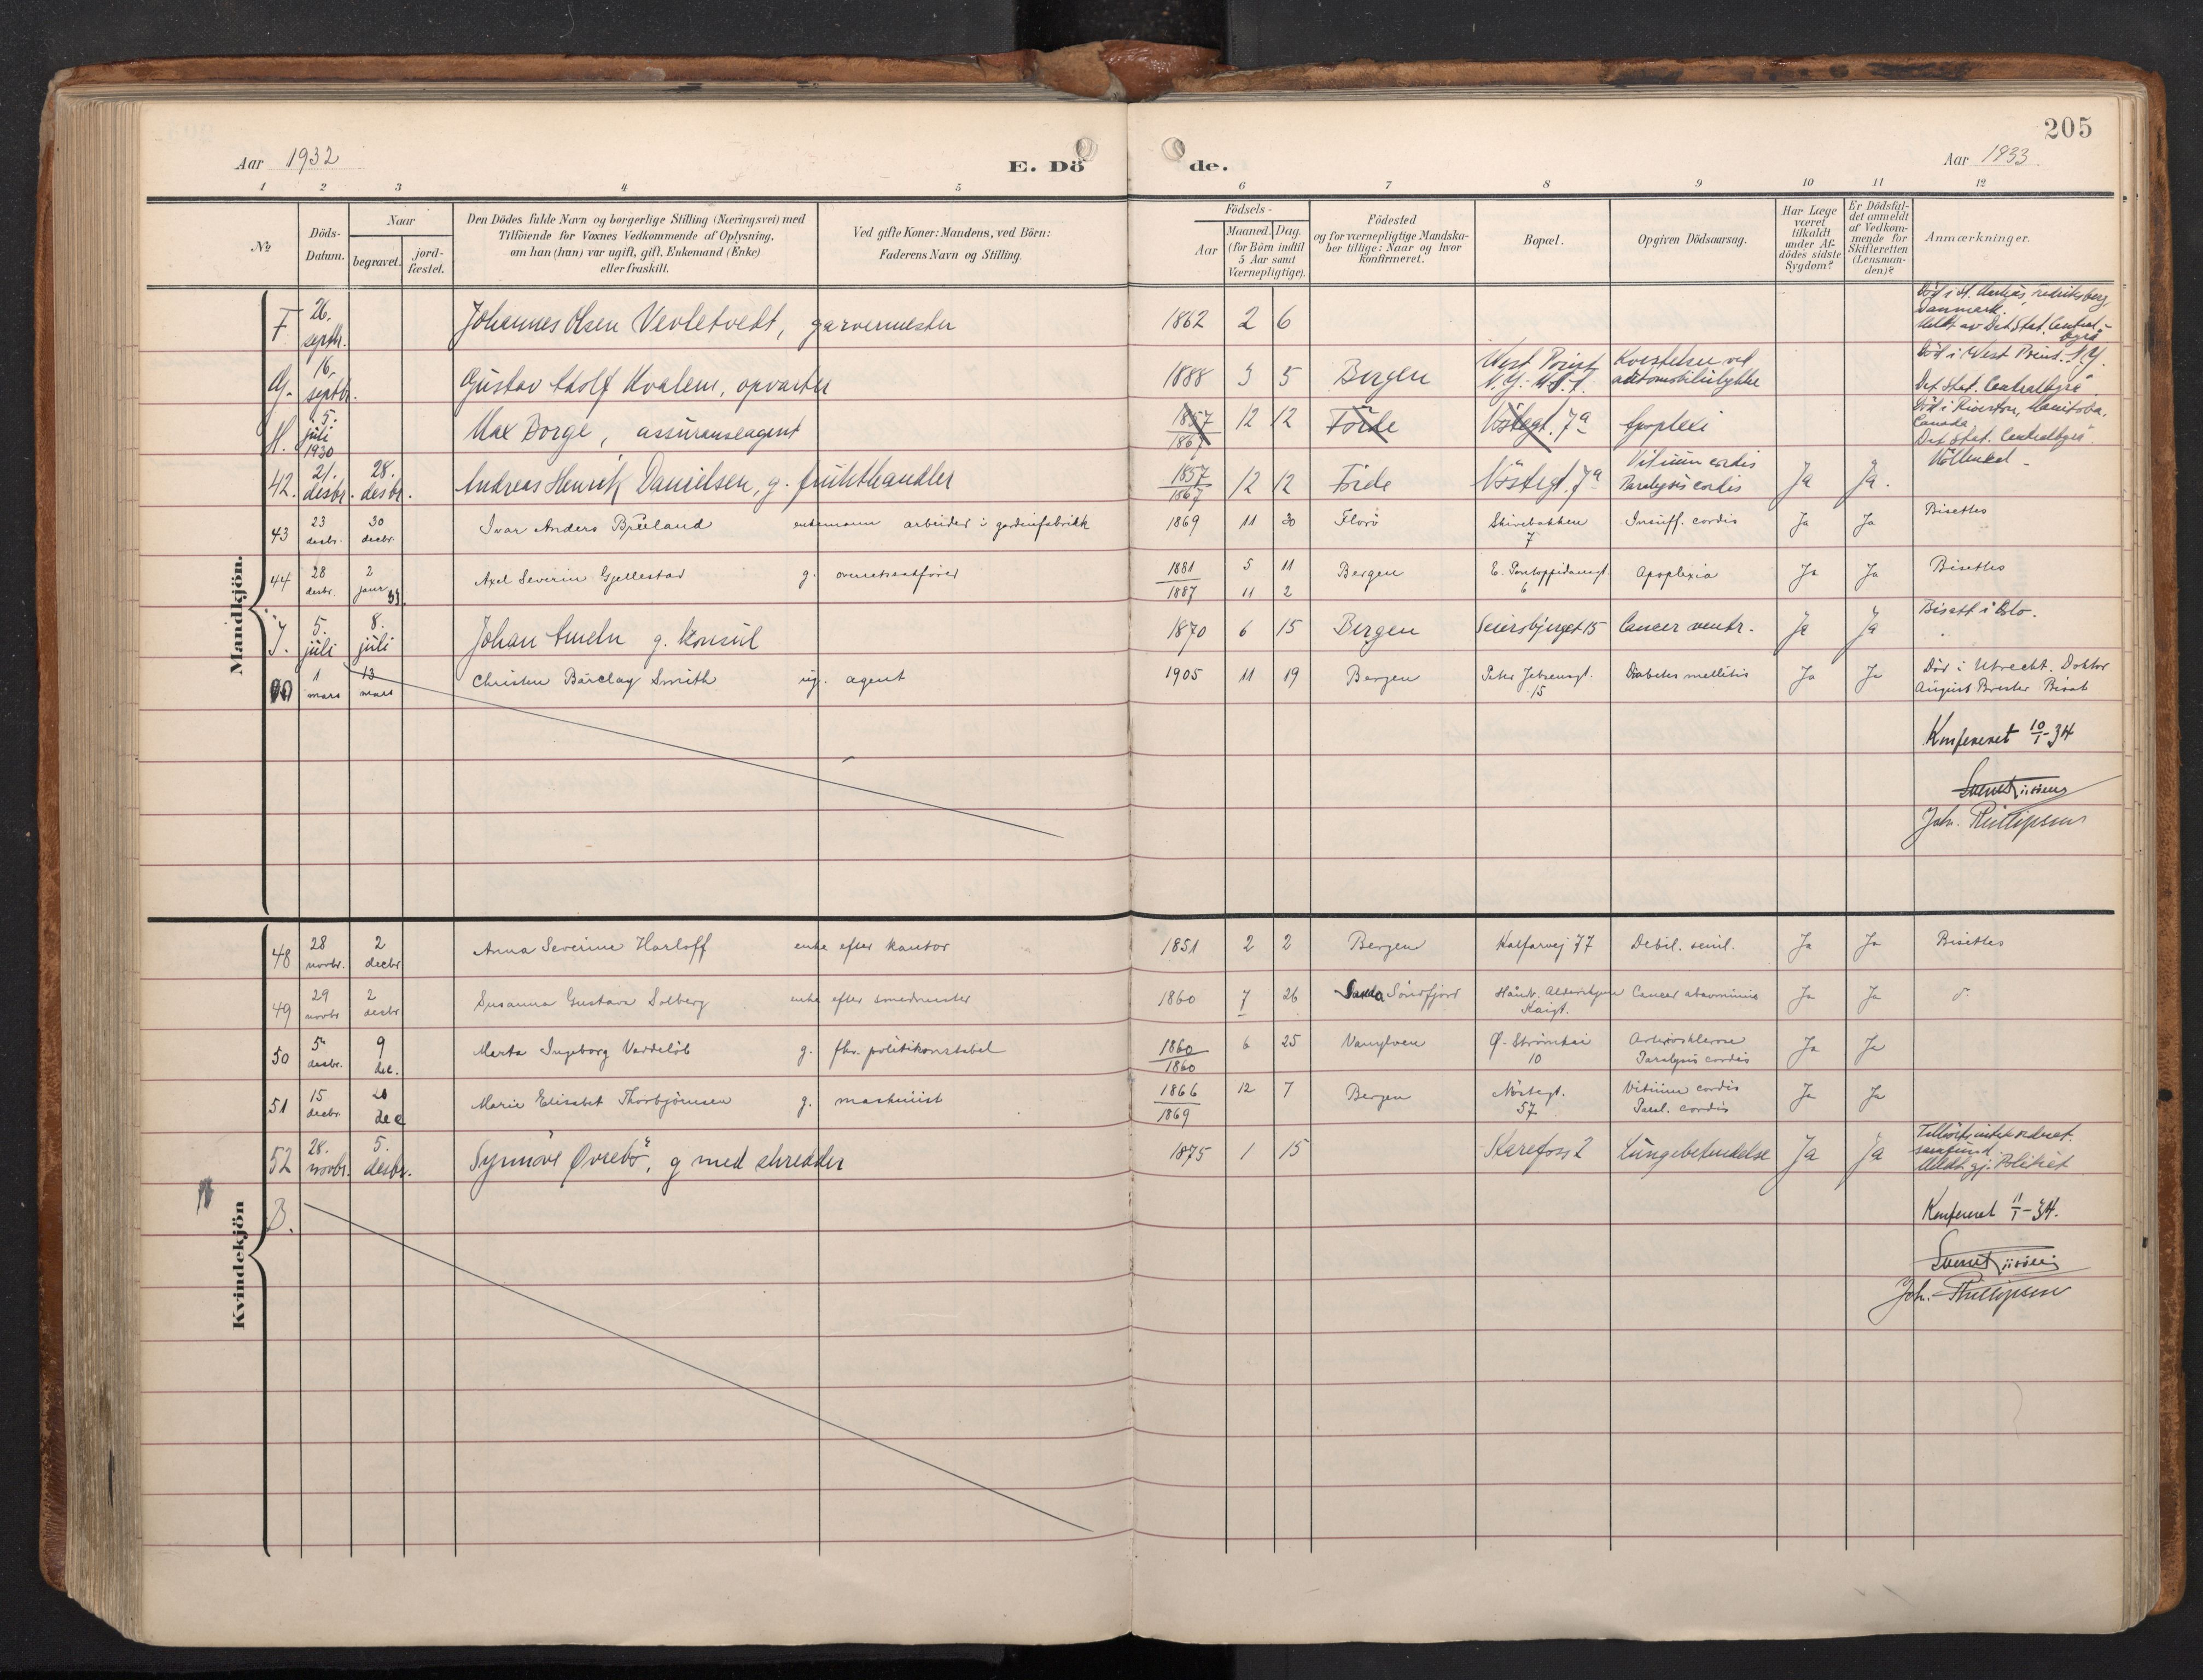 205
Aar 1932
E. Dö
de.
Aar 1933
1 2 3 4 5 6 7 8 9 10 11 12
No
Döds-
Datum.
Naar
begravet.
jord-
fæstet.
Den Dödes fulde Navn og borgerlige Stilling (Næringsvei) med
Tilföiende for Voxnes Vedkommende af Oplysning,
om han (hun) var ugift, gift, Enkemand (Enke)
eller fraskilt.
Ved gifte Koner: Mandens, ved Börn:
Faderens Navn og Stilling.
Födsels-
Aar
Maaned. Dag.
(for Börn indtil
5 Aar samt
Værnepligtige).
Födested
og for værnepligtige Mandska-
ber tillige: Naar og hvor
Konfirmeret.
Bopæl.
Opgiven Dödsaarsag.
Har Læge
været
tilkaldt
under Af-
dödes sidste
Sygdom?
Er Dödsfal-
det anmeldt
af Vedkom-
mende for
Skifteretten
(Lensman-
den)?
Anmærkninger.
Mandkjön.
F. 26. septbr. Johannes Olsen Vevletvedt, garvermester 1862 2 6
Danmark.
G. 16. septbr. Gustav Adolf Hvalem, opvarter 1888 3 5 Bergen West Point N.Y. U.S.A. Kvæstelser ved automobilulykke Död i West Point. N.Y.
Det Stat. Centralbyrå
H. 5. juli 1930 Max Borge, assuranseagent 1857 1867 12 12 Förde Nöstegt. 7a Apoplexi Död i Riverton, Manitoba,
Canada
Det Stat. Centralbyrå.
42. 21. desbr. 28. desbr. Andreas Henrik Danielsen, g. frukthandler 1857 1867 12 12 Förde Nöstegt. 7a Vitium cordis
Paralysis cordis Ja Ja. Möllendal
43 23 desbr. 30 decbr. Ivar Anders Bjueland enkemann arbeider i gardinfabrikk 1869 11 30 Florö Skivebakken 7 Insuff. cordis Ja Ja Bisettes
44 28 desbr. 2 januar 33. Axel Severin Gjellestad g. overrettssakförer 1881 5 11
1887 11 2 Bergen E. Pontoppidansgt. 6 Apoplexia Ja Ja Bisettes
J. 5. juli 8. juli Johan Ameln g. konsul 1870 6 15 Bergen Seiersbjerget 15 Cancer ventr. Ja Ja Bisatt i Oslo.
1 mars 13 mars Christen Barclay Smith ug. agent 1905 11 19 Bergen Peter Jebsensgt. 15 Diabetes mellitis Ja Ja Död i Utrecht. Doktor
August Brester Bisat
Konfereret 10/1-34
Joh. Phillipsen
Kvindekjön
48 28 novbr. 2 decbr Anna Severine Harloff enke efter kantor 1851 2 2 Bergen Kalfarvej 77 Debil. senil. Ja Ja Bisettes
49 29 novbr 2 desbr Susanna Gustava Solberg enke efter smedmester 1860 7 26 Söndfjord Håndv. Aldershjem Kaigt. Cancer abdominis Ja Ja
50 5 desbr. 9 dec. Marta Ingeborg Vaddelöb g. fhv. politikonstabel 1860 1860 6 25 Vanylven Ø. Strömkai 10 Arteriosklerose
Paralysis cordis Ja Ja
51 15 decbr. 20 dec Marie Elisabet Thorbjörnsen g. maskinist 1866 1869 12 7 Bergen Nöstegt. 57 Vitium cordis
Paral. cordis Ja Ja
52 28. novbr. 5. desbr. Synnöve Øvrebö, g med skredder 1875 1 15 Skarefoss 2 Lungebetendelse Ja Ja
Meldt gj. Politiet
B.
Konfereret 11/1-34.
Joh. Phillipsen